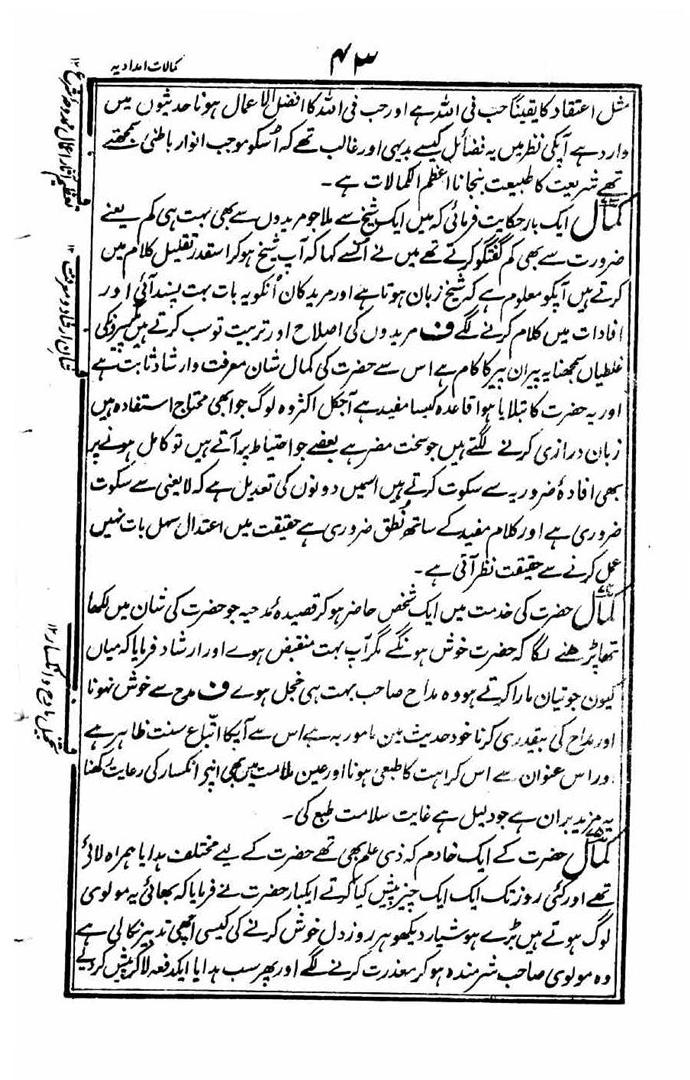 ۴۳
کمالات امدادیہ
مثل اعتقاد کا یقیناً حب فی اللہ ہے اور حب فی اللہ کا افضل الاعمال ہونا حدیثوں میں
وارد ہے آپکی نظر میں یہ فضائل کیسے بدیہی اور غالب تھے کہ اُسکو موجب انوار باطنی سمجھتے
تھے شریعت کا طبیعت بنجانا اعظم الکمالات ہے۔
کمال ایک بار حکایت فرمائی کہ میں ایک شیخ سے ملا جو مریدوں سے بھی بہت ہی کم یعنے
ضرورت سے بھی کم گفتگو کرتے تھے میں نے اُنسے کہا کہ آپ شیخ ہو کر اسقدر تقلیل کلام میں
کرتے ہیں آپکو معلوم ہے کہ شیخ زبان ہوتا ہے اور مرید کان اُنکو یہ بات بہت پسند آئی اور
افادات میں کلام کرنے لگے ف مریدوں کی اصلاح اور تربیت تو سب کرتے ہیں مگر پیرونکی
غلطیاں سمجھنا یہ پیران پیر کا کام ہے اس سے حضرت کی کمال شان معرفت و ارشاد ثابت ہے
اور یہ حضرت کا بتلایا ہوا قاعدہ کیسا مفید ہے آجکل اکثر وہ لوگ جو ابھی محتاج استفادہ ہیں
زبان درازی کرنے لگتے ہیں جو سخت مضر ہے بعضے جو احتیاط پر آتے ہیں تو کامل ہونے پر
بھی افادۂ ضروریہ سے سکوت کرتے ہیں اسمیں دونوں کی تعدیل ہے کہ لایعنی سے سکوت
ضروری ہے اور کلام مفید کے ساتھ نُطق ضروری ہے حقیقت میں اعتدال سہل بات نہیں
عمل کرنے سے حقیقت نظر آتی ہے۔
کمال حضرت کی خدمت میں ایک شخص حاضر ہو کر قصیدہ مدحیہ جو حضرت کی شان میں لکھا
تھا پڑھنے لگا کہ حضرت خوش ہونگے مگر آپ بہت منقبض ہوے اور ارشاد فرمایا کہ میاں
کیون جوتیان مارا کرتے ہو وہ مداح صاحب بہت ہی خجل ہوے ف مدح سے خوش نہونا
اور مداح کی بیقدری کرنا خود حدیث میں مامور بہ ہے اس سے آپکا اتباع سنت ظاہر ہے
اور اس عنوان سے اس کراہت کا طبعی ہونا اور عین ملامت میں بھی اپنے انکسار کی رعایت رکھنا
یہ مزید بران ہے جو دلیل ہے غایت سلامت طبع کی۔
کمال حضرت کے ایک خادم کہ ذی علم بھی تھے حضرت کے لیے مختلف ہدایا ہمراہ لائے
تھے اور کئی روز تک ایک ایک چیز پیش کیا کرتے ایکبار حضرت نے فرمایا کہ بھائی یہ مولوی
لوگ ہوتے ہیں بڑے ہوشیار دیکھو ہر روز دل خوش کرنے کی کیسی اچھی تدبیر نکالی ہے
وہ مولوی صاحب شرمندہ ہو کر معذرت کرنے لگے اور پھر سب ہدایا ایکدفعہ لاکر پیش کردیے
شان ارشاد و معرفت ۱۲
تخجیل مادح و انکسار ۱۲